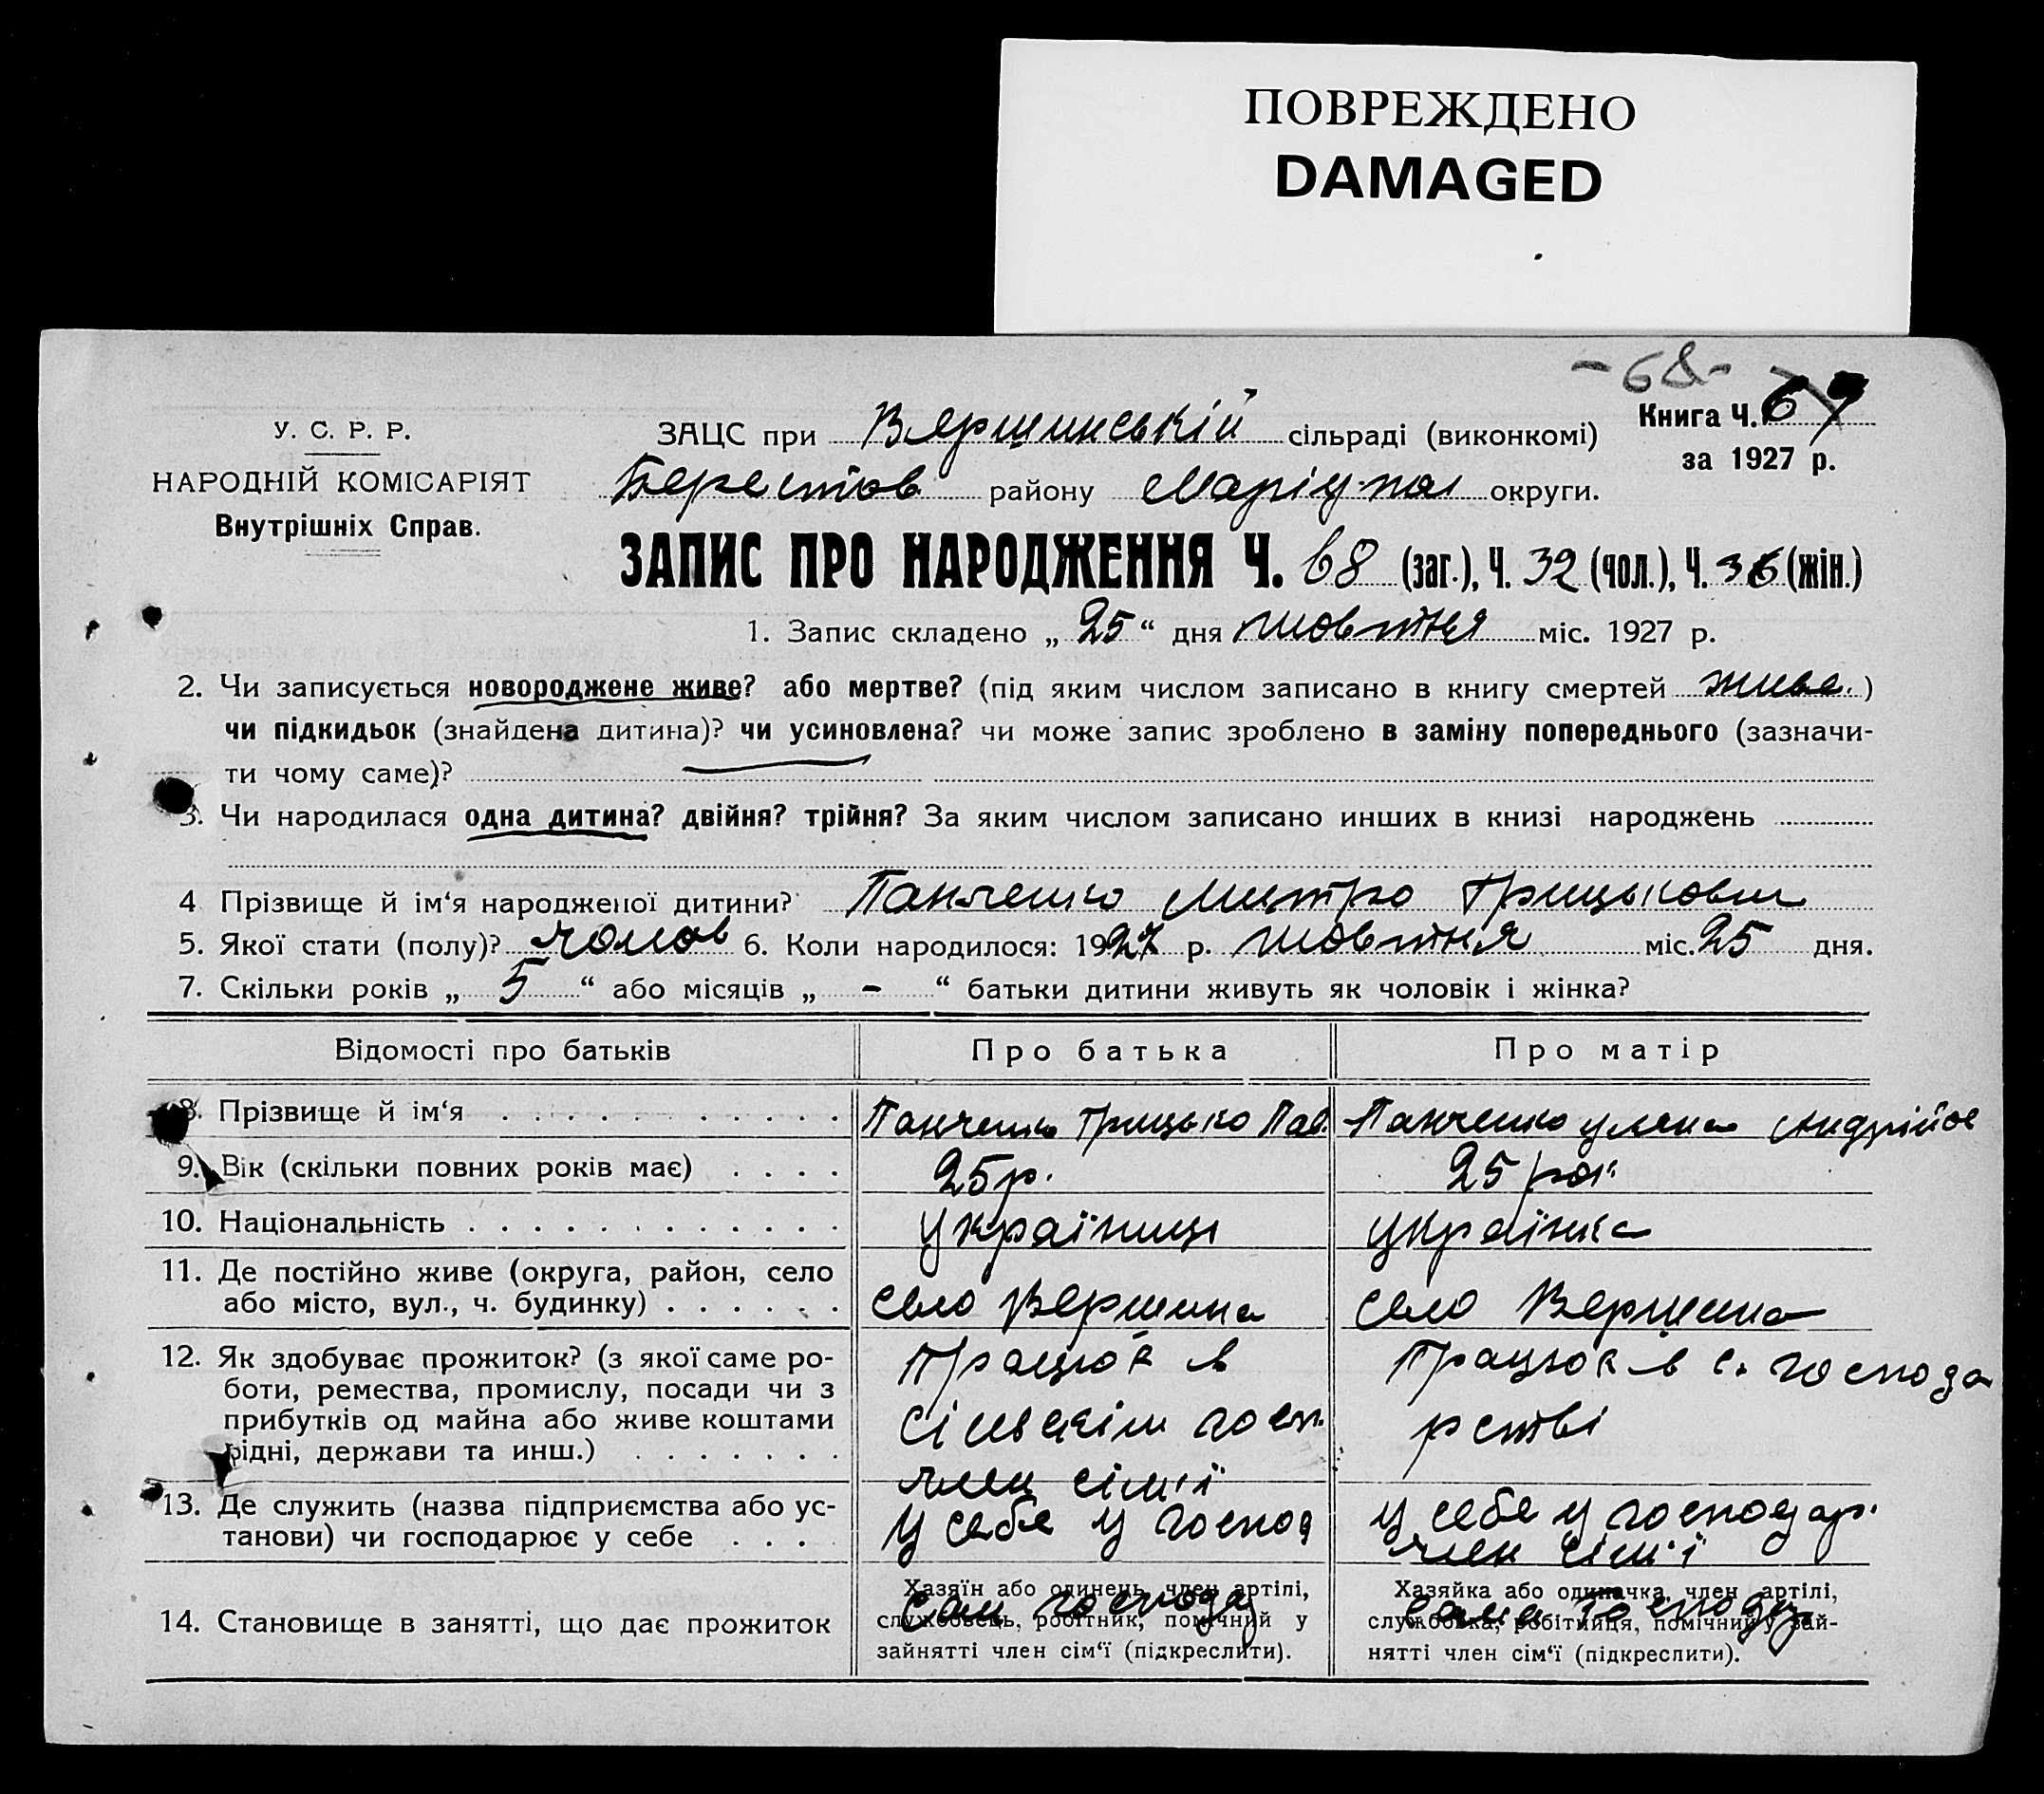 ПОВРЕЖДЕНО
DAMAGED
-68-
Книга Ч. 69
за 1927 р.
У. С. Р. Р.
НАРОДНІЙ КОМІСАРІЯТ
Внутрішніх Справ.
ЗАЦС при Вершинській сільраді (виконкомі)
Берестов району Маріуп округи.
ЗАПИС ПРО НАРОДЖЕННЯ Ч. 68 (заг.), Ч. 32 (чол.), Ч. 36 (жін.)
1. Запис складено „ 25 “ дня жовтня міс. 1927 р.
2. Чи записується новороджене живе? або мертве? (під яким числом записано в книгу смертей живе.)
чи підкидьок (знайдена дитина)? чи усиновлена? чи може запис зроблено в заміну попереднього (зазначи-
ти чому саме)?
3. Чи народилася одна дитина? двійня? трійня? За яким числом записано инших в книзі народжень
4 Прізвище й ім‘я народженої дитини? Панченко Митро Грицькови
5. Якої стати (полу)? чолов 6. Коли народилося: 1927 р. жовтня міс. 25 дня.
7. Скільки років „ 5 “ або місяців „ - “ батьки дитини живуть як чоловік і жінка?
Відомості про батьків Про батька Про матір
8. Прізвище й ім‘я Панченко Грицько Пав. Панченко Уляна Андрійов
9. Вік (скільки повних років має) 25р. 25 рок
10. Національність Українець українка
11. Де постійно живе (округа, район, село
або місто, вул., ч. будинку) село Вершина село Вершина
12. Як здобуває прожиток? (з якої саме ро-
боти, ремества, промислу, посади чи з
прибутків од майна або живе коштами
рідні, держави та инш.)
Працює в
сільскім госп.
член сім'ї
Працює в с. господа
рстві
13. Де служить (назва підприємства або ус-
танови) чи господарює у себе
у себе у господ
у себе у господар.
член сім'ї
14. Становище в занятті, що дає прожиток
Хазяїн або одинець, член артілі,
службовець, робітник, помічний у
зайнятті член сім‘ї (підкреслити).
сам господар
Хазяйка або одиначка, член артілі,
службовка, робітниця, помічний у зай-
нятті член сім‘ї (підкреслити).
сама господар